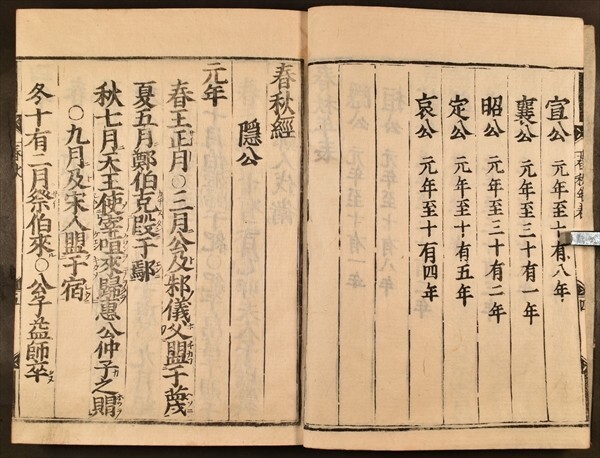 宣公 元年至十有八年
襄公 元年至三十有一年
昭公 元年至三十有二年
定公 元年至十有五年
哀公 元年至十有四年
春秋經
隱公
元年
春王正月○三月公及邾儀父盟于蔑
夏五月鄭伯克段于鄢
秋七月天王使宰咺來歸惠公仲子之賵
○九月及宋人盟于宿
冬十有二月祭伯來○公子益師卒